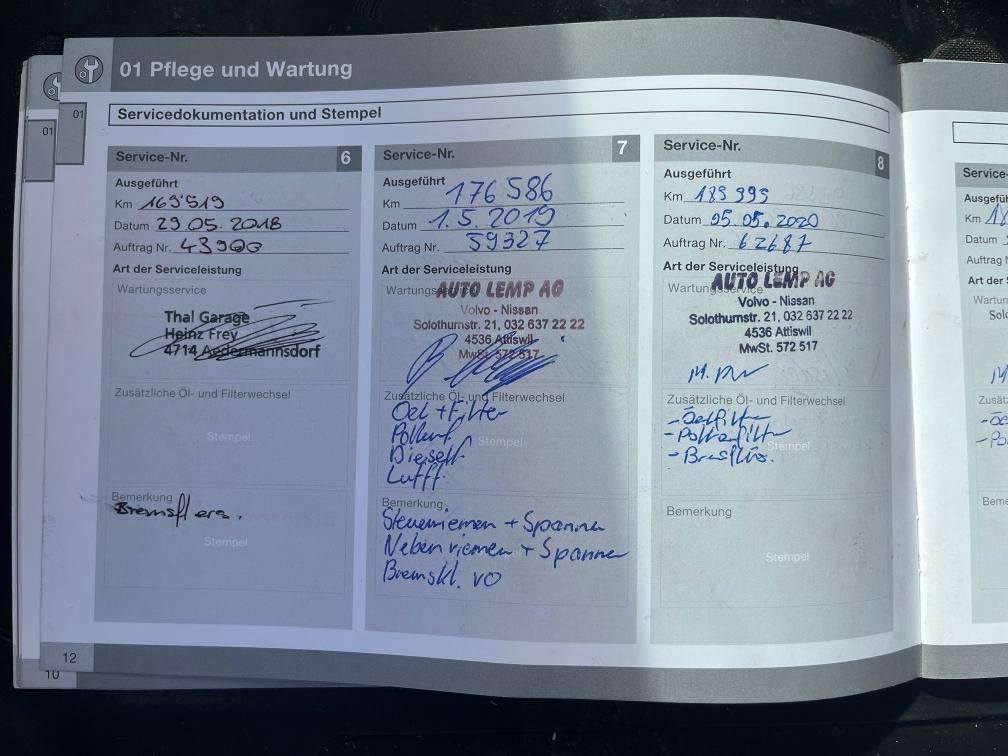 01 Pflege und Wartung
01
01
Servicedokumentation und Stempel
Service-Nr. 6
Ausgeführt
Km 169'519
Datum 29.05.2018
Auftrag Nr. 43900
Art der Serviceleistung
Wartungsservice
Thal Garage
Heinz Frey
4714 Aedermannsdorf
Zusätzliche Öl- und Filterwechsel
Stempel
Bemerkung
Stempel
Service-Nr. 7
Ausgeführt
Km 176 586
Datum 1.5.2019
Auftrag Nr. 59327
Art der Serviceleistung
Wartungsservice
AUTO LEMP AG
Volvo - Nissan
Solothurnstr. 21, 032 637 22 22
4536 Attiswil
MwSt. 572 517
Zusätzliche Öl- und Filterwechsel
Oel + Filter
Pollenf.
Dieself.
Luftf.
Stempel
Bemerkung
Steuerriemen + Spanner
Nebenriemen + Spanner
Bremskl. VO
Service-Nr. 8
Ausgeführt
Km 189 995
Datum 05.05.2020
Auftrag Nr. 62687
Art der Serviceleistung
Wartungsservice
AUTO LEMP AG
Volvo - Nissan
Solothurnstr. 21, 032 637 22 22
4536 Attiswil
MwSt. 572 517
Zusätzliche Öl- und Filterwechsel
- Oelfilter
- Pollenfilter
Stempel
Bemerkung
Stempel
Service-
Ausgefüh
Km
Datum
Auftrag N
Art der S
Wartun
Zusätz
Beme
12
10